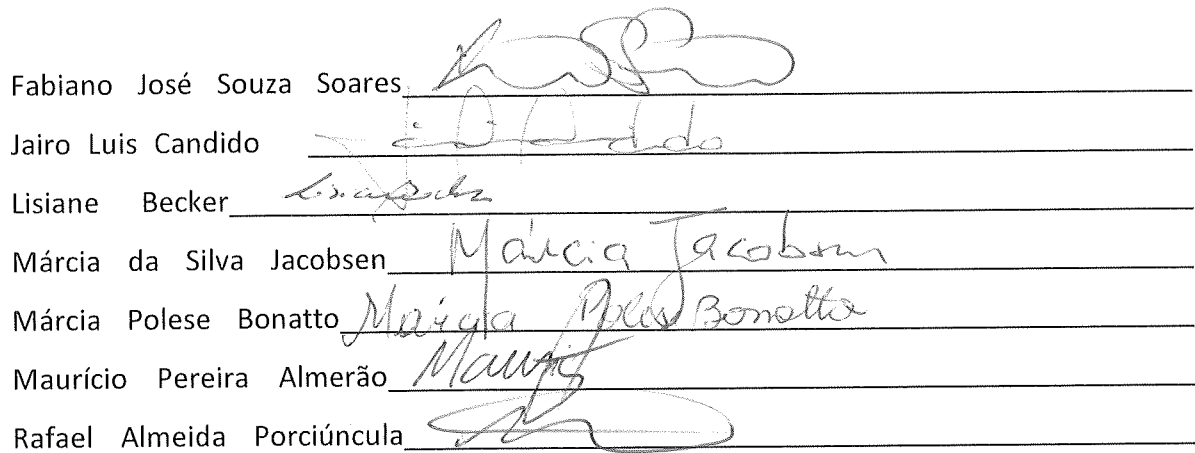 Fabiano José Souza Soares
Jairo Luis Candido
Lisiane Becker
Márcia da Silva Jacobsen Márcia Jacobsen
Márcia Polese Bonatto Márcia Polese Bonatto
Maurício Pereira Almerão
Rafael Almeida Porciúncula